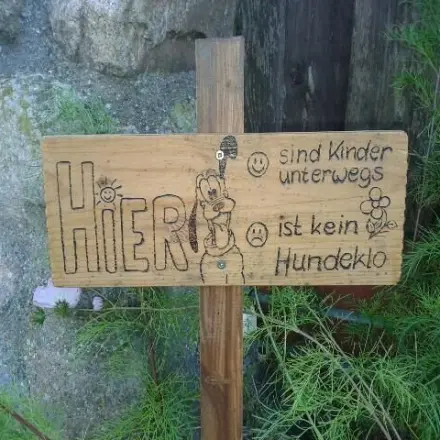 HiER
sind Kinder
unterwegs
ist kein
Hundeklo